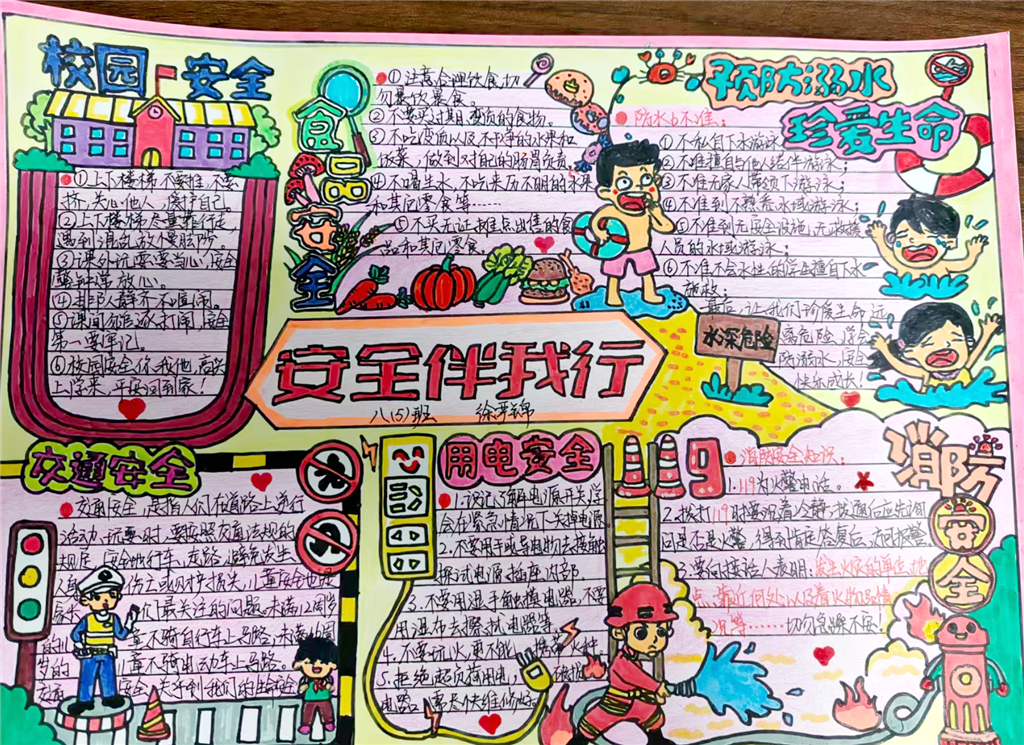 校园安全
①上下楼梯不要挤,不要
挤,关心他人,保护自己。
②上下楼梯尽量靠右走,
遇到混乱放慢脚防
③课外玩耍要当心,安全
警钟牢放心。
④
⑤课间勿追逐打闹,安全
第一要牢记。
⑥校园安全你我他,高兴
上学来,平安回到家!
食品安全
①注意合理饮食,切
勿暴饮暴食。
②不要买过期、变质的食物。
③不吃变质以及不干净的水果和
饭菜,做到对自己的肠胃负责。
④不喝生水,不吃来历不明的水果
和其它零食等……
⑤不买无证摊点出售的食
品和其它零食
预防溺水
珍爱生命
防水6不准:
①不私自下水游泳
②不准擅自与他人结伴游泳;
③不准无家人带领下游泳;
④不准到不熟悉水域游泳;
⑤不准到无安全设施、无救援
人员的水域游泳;
⑥不准不会水性的学生擅自下水
施救;
最后,让我们珍爱生命,远
离危险,学会
防溺水,安全
快乐成长!
水深危险
安全伴我行
八(5)班
交通安全
交通安全,是指人们在道路上进行
活动、玩耍时,要按照交通法规的
规定,安全地行车、走路,避免发生
伤亡或财产损失,儿童安全也是
们最关注的问题,未满12周岁
童不骑自行车上马路,未满16周
岁的
儿童不骑电动车上马路。
安全,关乎到我们的生命
用电安全
1.认识了解电源开关,学
会在紧急情况下关掉电源。
2.不要用手或导电物去接触
探试电源插座内部。
3.不要用湿手触摸电器,不要
用湿布去擦拭电器等。
4.不要玩火,更不能携带火种。
5.拒绝超负荷用电,
电路,
消防安全
119
消防安全知识:
1.119为火警电话。
2.拨打119时要沉着冷静,拨通后应先询
问是不是火警,得到肯定答复后,方可报警
3.要向接话人表明:发生火灾的单位、地
点、靠近何处以及着火物品情
况等……切勿急躁不安!